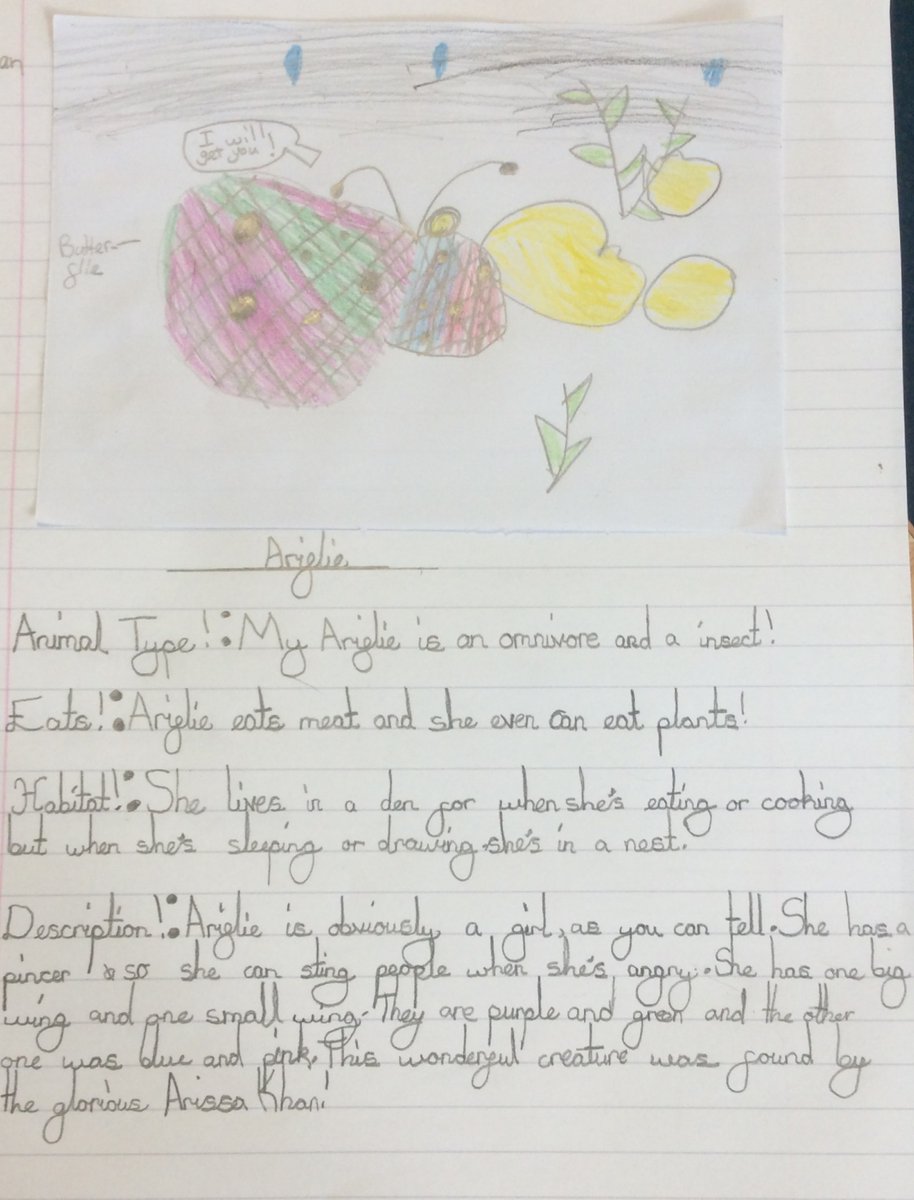 an
I will
get you!
Butter-
flie
Ariflie
Animal Type!: My Ariflie is an omnivore and a insect!
Eats!: Ariflie eats meat and she even can eat plants!
Habitat!: She lives in a den for when she's eating or cooking
but when she's sleeping or drawing she's in a nest.
Description!: Ariflie is obviously a girl, as you can tell. She has a
pincer so she can sting people when she's angry. She has one big
wing and one small wing. They are purple and green and the other
one was blue and pink. This wonderful creature was found by
the glorious Arissa Khan!